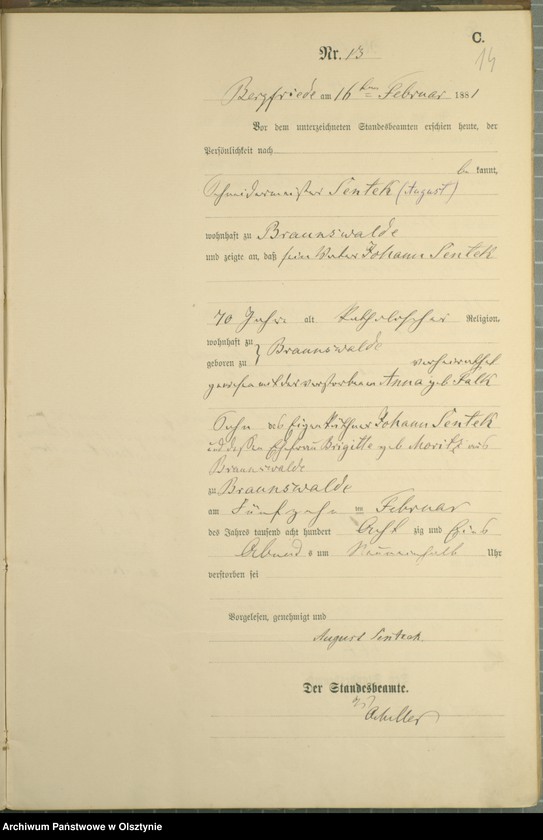 C.
14
Nr. 13
Bergfriede am 16ten Februar 1881
Vor dem unterzeichneten Standesbeamten erschien heute, der
Persönlichkeit nach
be kannt,
Schneidermeister Sentek (August)
wohnhaft zu Braunswalde
und zeigte an, daß sein Vater Johann Sentek
70 Jahre alt katholischer Religion,
wohnhaft zu
geboren zu } Braunswalde
verheirathet
gewesen mit der verstorbenen Anna geb Falk
Sohn des Eigenkäthner Johann Sentek
und dessen Ehefrau Brigitte geb Moritz aus
Braunswalde
zu Braunswalde
am Fünfzehn ten Februar
des Jahres tausend acht hundert Acht zig und Eins
Abend s um Neuneinhalb Uhr
verstorben sei
Vorgelesen, genehmigt und
August Sentek
Der Standesbeamte.
Archiwum Państwowe w Olsztynie